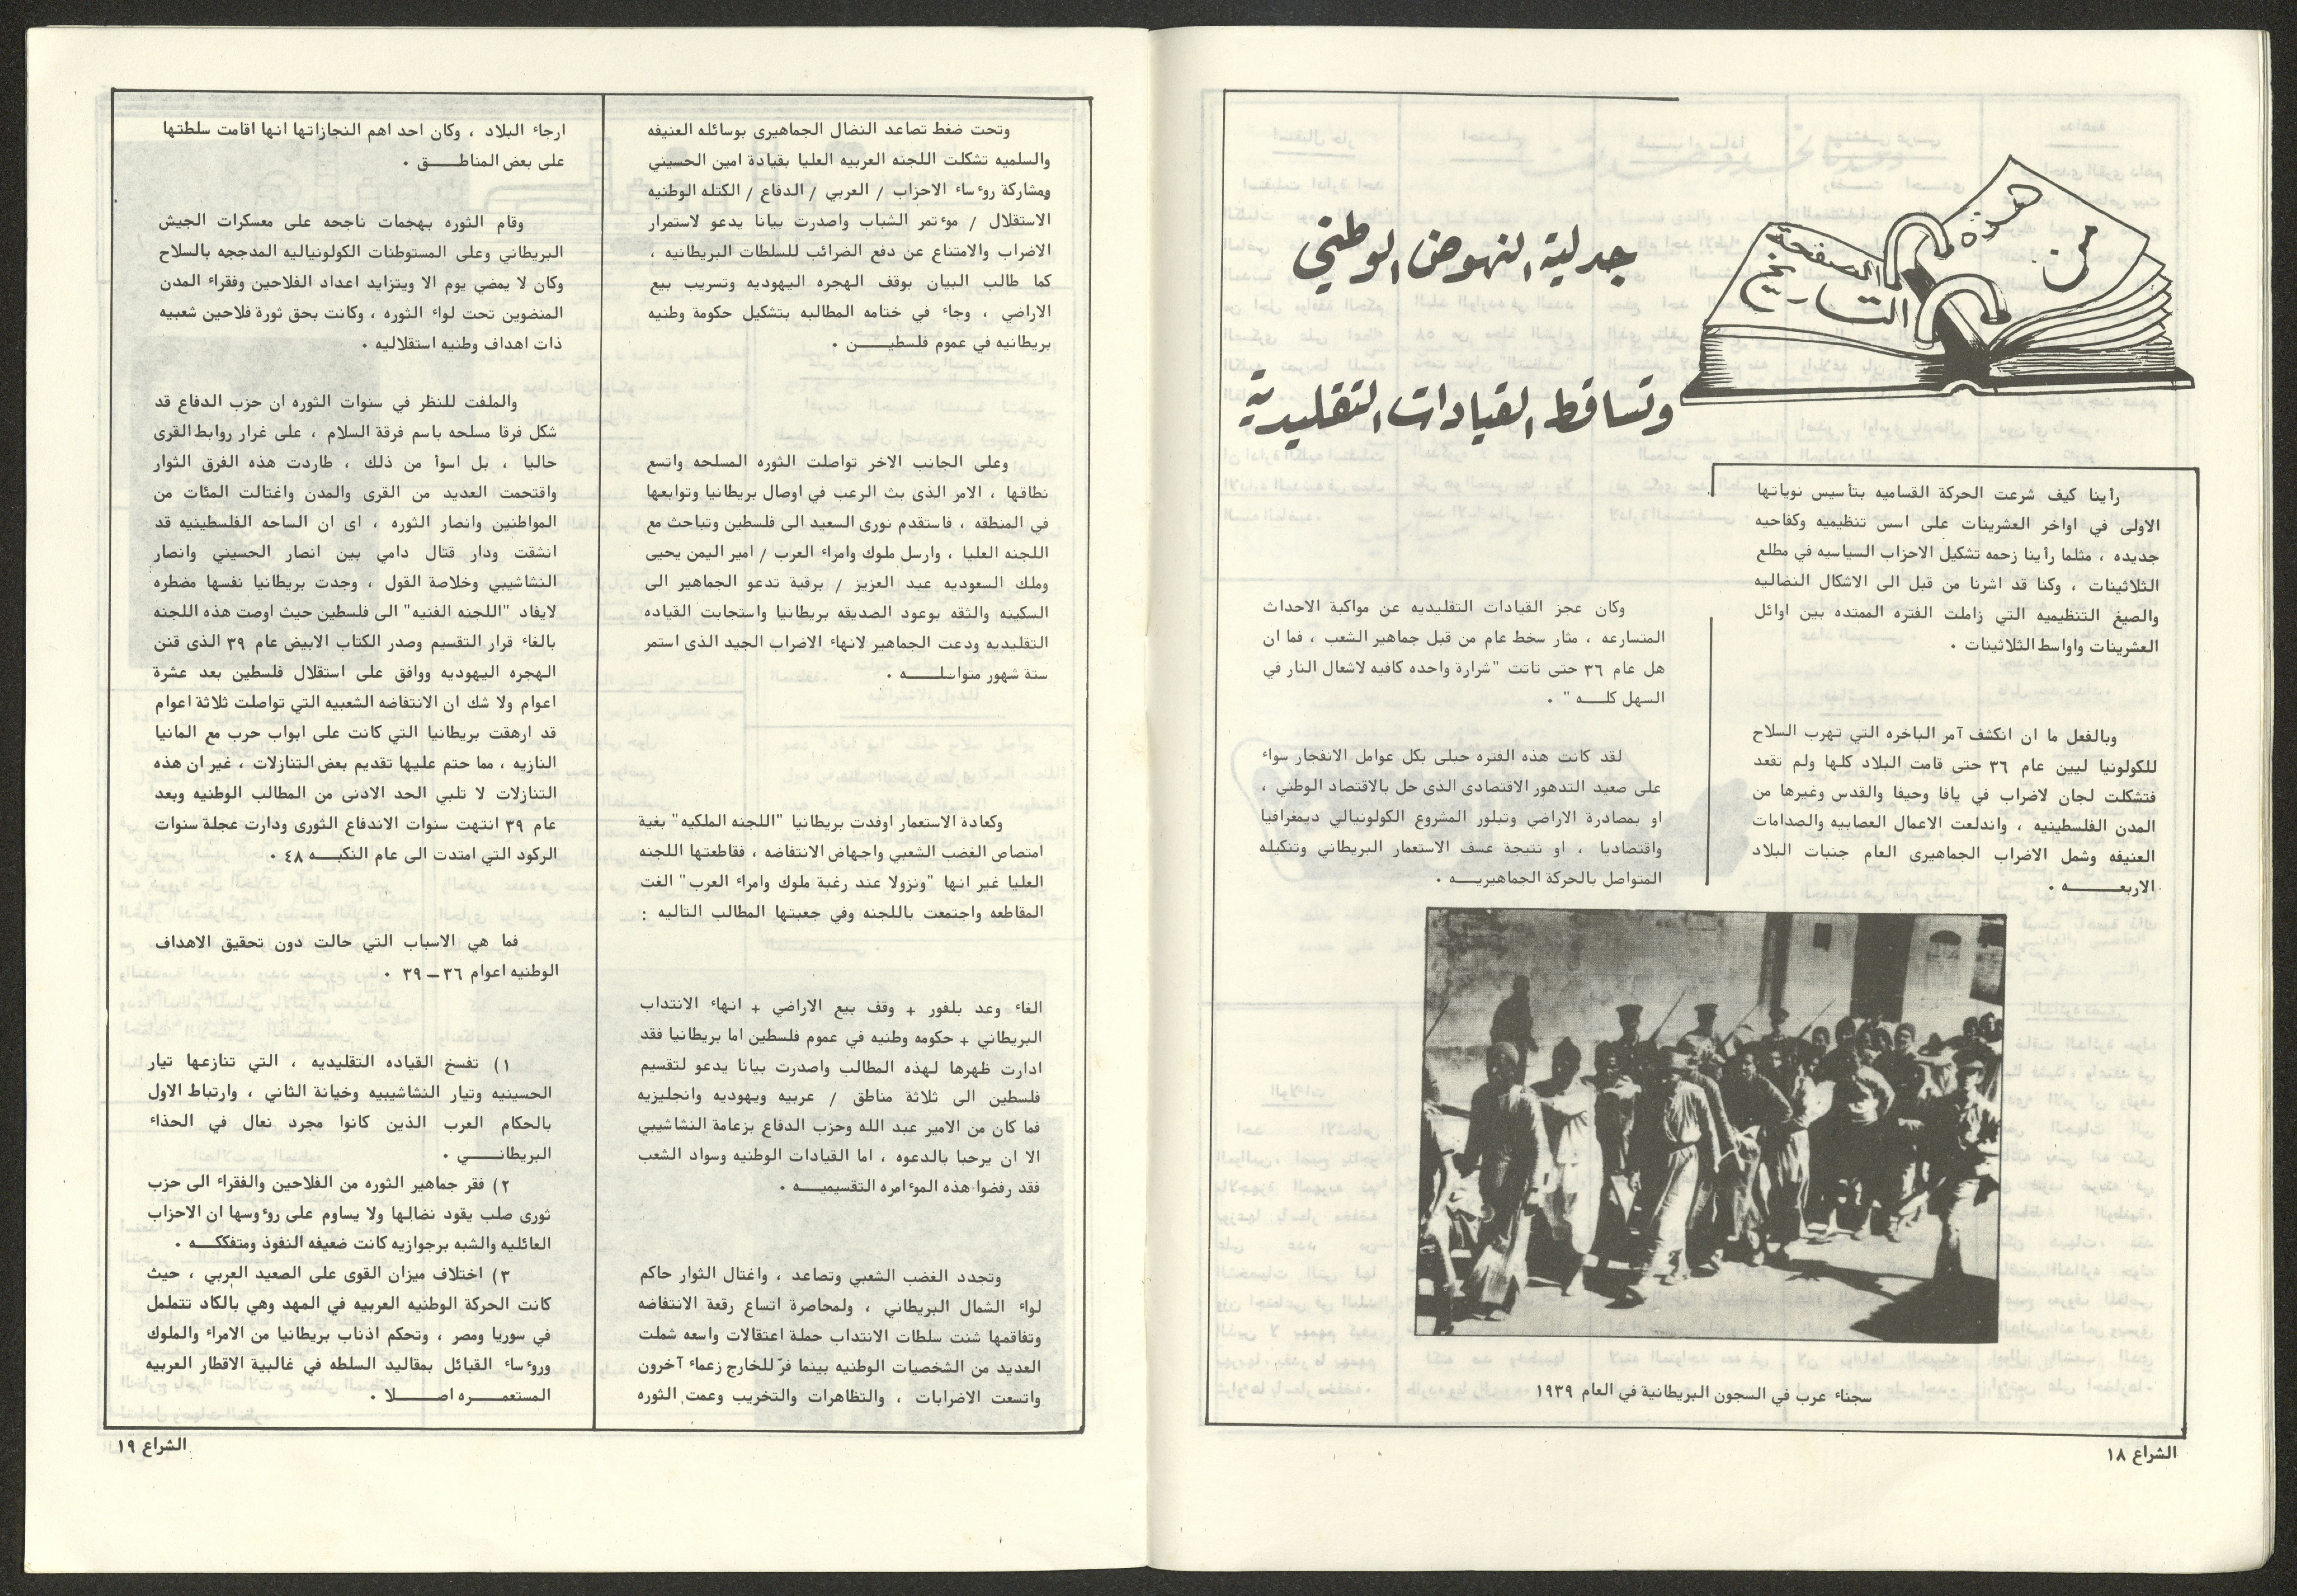 من
هذه
الصفحة
التاريخ
جدلية النهوض الوطني
وتساقط القيادات التقليدية
رأينا كيف شرعت الحركة القساميه بتأسيس نوياتها
الاولى في اواخر العشرينات على اسس تنظيميه وكفاحيه
جديده ، مثلما رأينا زحمه تشكيل الاحزاب السياسيه في مطلع
الثلاثينات ، وكنا قد اشرنا من قبل الى الاشكال النضاليه
والصيغ التنظيميه التي زاملت الفتره الممتده بين اوائل
العشرينات واواسط الثلاثينات .
وبالفعل ما ان انكشف آمر الباخره التي تهرب السلاح
للكولونيا ليين عام ٣٦ حتى قامت البلاد كلها ولم تقعد
فتشكلت لجان لاضراب في يافا وحيفا والقدس وغيرها من
المدن الفلسطينيه ، واندلعت الاعمال العصابيه والصدامات
العنيفه وشمل الاضراب الجماهيرى العام جنبات البلاد
الاربعـــــه .
وكان عجز القيادات التقليديه عن مواكبة الاحداث
المتسارعه ، مثار سخط عام من قبل جماهير الشعب ، فما ان
هل عام ٣٦ حتى تاتت "شرارة واحده كافيه لاشعال النار في
السهل كلـــه " .
لقد كانت هذه الفتره حبلى بكل عوامل الانفجار سواء
على صعيد التدهور الاقتصادى الذى حل بالاقتصاد الوطني ،
او بمصادرة الاراضي وتبلور المشروع الكولونيالي ديمغرافيا
واقتصاديا ، او نتيجة عسف الاستعمار البريطاني وتنكيله
المتواصل بالحركة الجماهيريـــه .
سجناء عرب في السجون البريطانية في العام ١٩٣٩
الشراع ١٨
وتحت ضغط تصاعد النضال الجماهيرى بوسائله العنيفه
والسلميه تشكلت اللجنه العربيه العليا بقيادة امين الحسيني
ومشاركة روءساء الاحزاب / العربي / الدفاع / الكتله الوطنيه
الاستقلال / موءتمر الشباب واصدرت بيانا يدعو لاستمرار
الاضراب والامتناع عن دفع الضرائب للسلطات البريطانيه ،
كما طالب البيان بوقف الهجره اليهوديه وتسريب بيع
الاراضي ، وجاء في ختامه المطالبه بتشكيل حكومة وطنيه
بريطانيه في عموم فلسطيـــن .
وعلى الجانب الاخر تواصلت الثوره المسلحه واتسع
نطاقها ، الامر الذى بث الرعب في اوصال بريطانيا وتوابعها
في المنطقه ، فاستقدم نورى السعيد الى فلسطين وتباحث مع
اللجنه العليا ، وارسل ملوك وامراء العرب / امير اليمن يحيى
وملك السعوديه عبد العزيز / برقية تدعو الجماهير الى
السكينه والثقه بوعود الصديقه بريطانيا واستجابت القياده
التقليديه ودعت الجماهير لانهاء الاضراب الجيد الذى استمر
ستة شهور متواصلـــه .
وكعادة الاستعمار اوفدت بريطانيا "اللجنه الملكيه" بغية
امتصاص الغضب الشعبي واجهاض الانتفاضه ، فقاطعتها اللجنه
العليا غير انها "ونزولا عند رغبة ملوك وامراء العرب" الغت
المقاطعه واجتمعت باللجنه وفي جعبتها المطالب التاليه :
الغاء وعد بلفور + وقف بيع الاراضي + انهاء الانتداب
البريطاني + حكومه وطنيه في عموم فلسطين اما بريطانيا فقد
ادارت ظهرها لهذه المطالب واصدرت بيانا يدعو لتقسيم
فلسطين الى ثلاثة مناطق / عربيه ويهوديه وانجليزيه
فما كان من الامير عبد الله وحزب الدفاع بزعامة النشاشيبي
الا ان يرحبا بالدعوه ، اما القيادات الوطنيه وسواد الشعب
فقد رفضوا هذه الموءامره التقسيميـــه .
وتجدد الغضب الشعبي وتصاعد ، واغتال الثوار حاكم
لواء الشمال البريطاني ، ولمحاصرة اتساع رقعة الانتفاضه
وتفاقمها شنت سلطات الانتداب حملة اعتقالات واسعه شملت
العديد من الشخصيات الوطنيه بينما فرّ للخارج زعماء آخرون
واتسعت الاضرابات ، والتظاهرات والتخريب وعمت الثوره
ارجاء البلاد ، وكان احد اهم النجازاتها انها اقامت سلطتها
على بعض المناطـــق .
وقام الثوره بهجمات ناجحه على معسكرات الجيش
البريطاني وعلى المستوطنات الكولونياليه المدججه بالسلاح
وكان لا يمضي يوم الا ويتزايد اعداد الفلاحين وفقراء المدن
المنضوين تحت لواء الثوره ، وكانت بحق ثورة فلاحين شعبيه
ذات اهداف وطنيه استقلاليه .
والملفت للنظر في سنوات الثوره ان حزب الدفاع قد
شكل فرقا مسلحه باسم فرقة السلام ، على غرار روابط القرى
حاليا ، بل اسوأ من ذلك ، طاردت هذه الفرق الثوار
واقتحمت العديد من القرى والمدن واغتالت المئات من
المواطنين وانصار الثوره ، اى ان الساحه الفلسطينيه قد
انشقت ودار قتال دامي بين انصار الحسيني وانصار
النشاشيبي وخلاصة القول ، وجدت بريطانيا نفسها مضطره
لايفاد "اللجنه الفنيه" الى فلسطين حيث اوصت هذه اللجنه
بالغاء قرار التقسيم وصدر الكتاب الابيض عام ٣٩ الذى قنن
الهجره اليهوديه ووافق على استقلال فلسطين بعد عشرة
اعوام ولا شك ان الانتفاضه الشعبيه التي تواصلت ثلاثة اعوام
قد ارهقت بريطانيا التي كانت على ابواب حرب مع المانيا
النازيه ، مما حتم عليها تقديم بعض التنازلات ، غير ان هذه
التنازلات لا تلبي الحد الادنى من المطالب الوطنيه وبعد
عام ٣٩ انتهت سنوات الاندفاع الثورى ودارت عجلة سنوات
الركود التي امتدت الى عام النكبـــه ٤٨ .
فما هي الاسباب التي حالت دون تحقيق الاهداف
الوطنيه اعوام ٣٦ – ٣٩ .
١) تفسخ القياده التقليديه ، التي تنازعها تيار
الحسينيه وتيار النشاشيبيه وخيانة الثاني ، وارتباط الاول
بالحكام العرب الذين كانوا مجرد نعال في الحذاء
البريطانـــي .
٢) فقر جماهير الثوره من الفلاحين والفقراء الى حزب
ثورى صلب يقود نضالها ولا يساوم على روءوسها ان الاحزاب
العائليه والشبه برجوازيه كانت ضعيفه النفوذ ومتفككـــه .
٣) اختلاف ميزان القوى على الصعيد العربي ، حيث
كانت الحركة الوطنيه العربيه في المهد وهي بالكاد تتململ
في سوريا ومصر ، وتحكم اذناب بريطانيا من الامراء والملوك
وروءساء القبائل بمقاليد السلطه في غالبية الاقطار العربيه
المستعمـــره اصـــلا .
الشراع ١٩